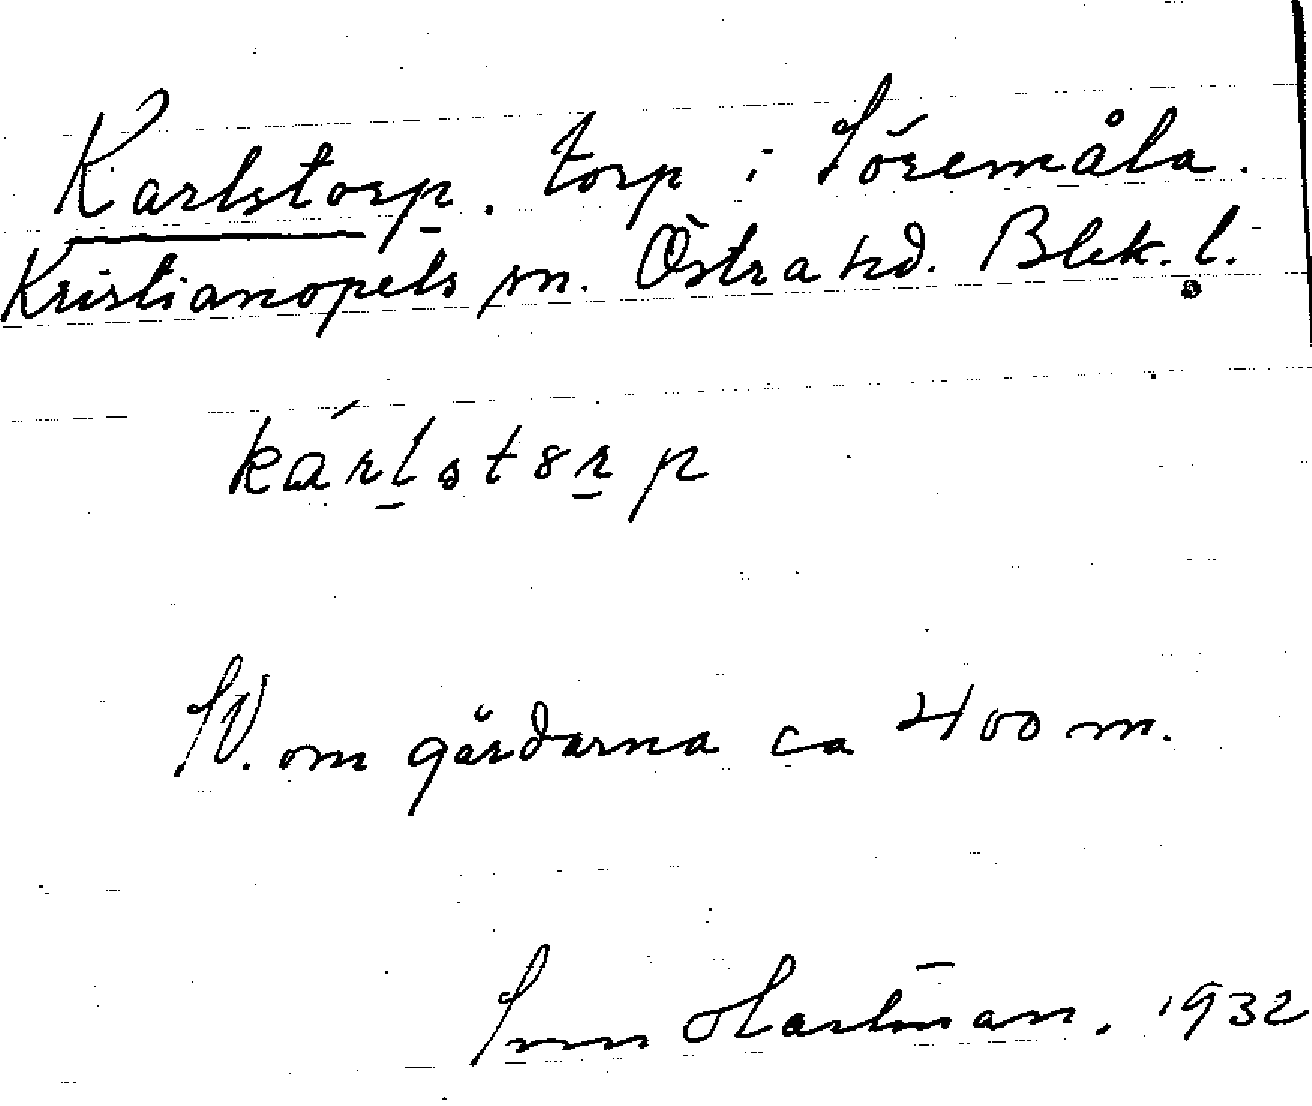 Karlstorp. torp i Söremåla.
Kristianopels sn. Östra hd. Blek. l.
kárlstorp
SV. om gårdarna ca 400 m.
Hartman. 1932